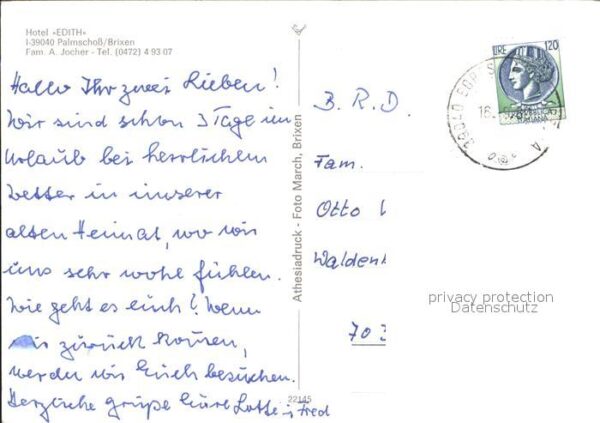 Hotel »EDITH«
I-39040 Palmschoß/Brixen
Fam. A. Jocher - Tel. (0472) 4 93 07
Hallo Ihr zwei Lieben!
Wir sind schon 3 Tage im
Urlaub bei herrlichem
Wetter in unserer
alten Heimat, wo wir
uns sehr wohl fühlen.
Wie geht es euch? Wenn
wir zurück kommen,
werden wir Euch besuchen.
Herzliche Grüße Eure Lotte u. Fred
Athesiadruck - Foto March, Brixen
22145
LIRE 120
39040
B. R. D.
Fam.
Otto
Walden
70
privacy protection
Datenschutz